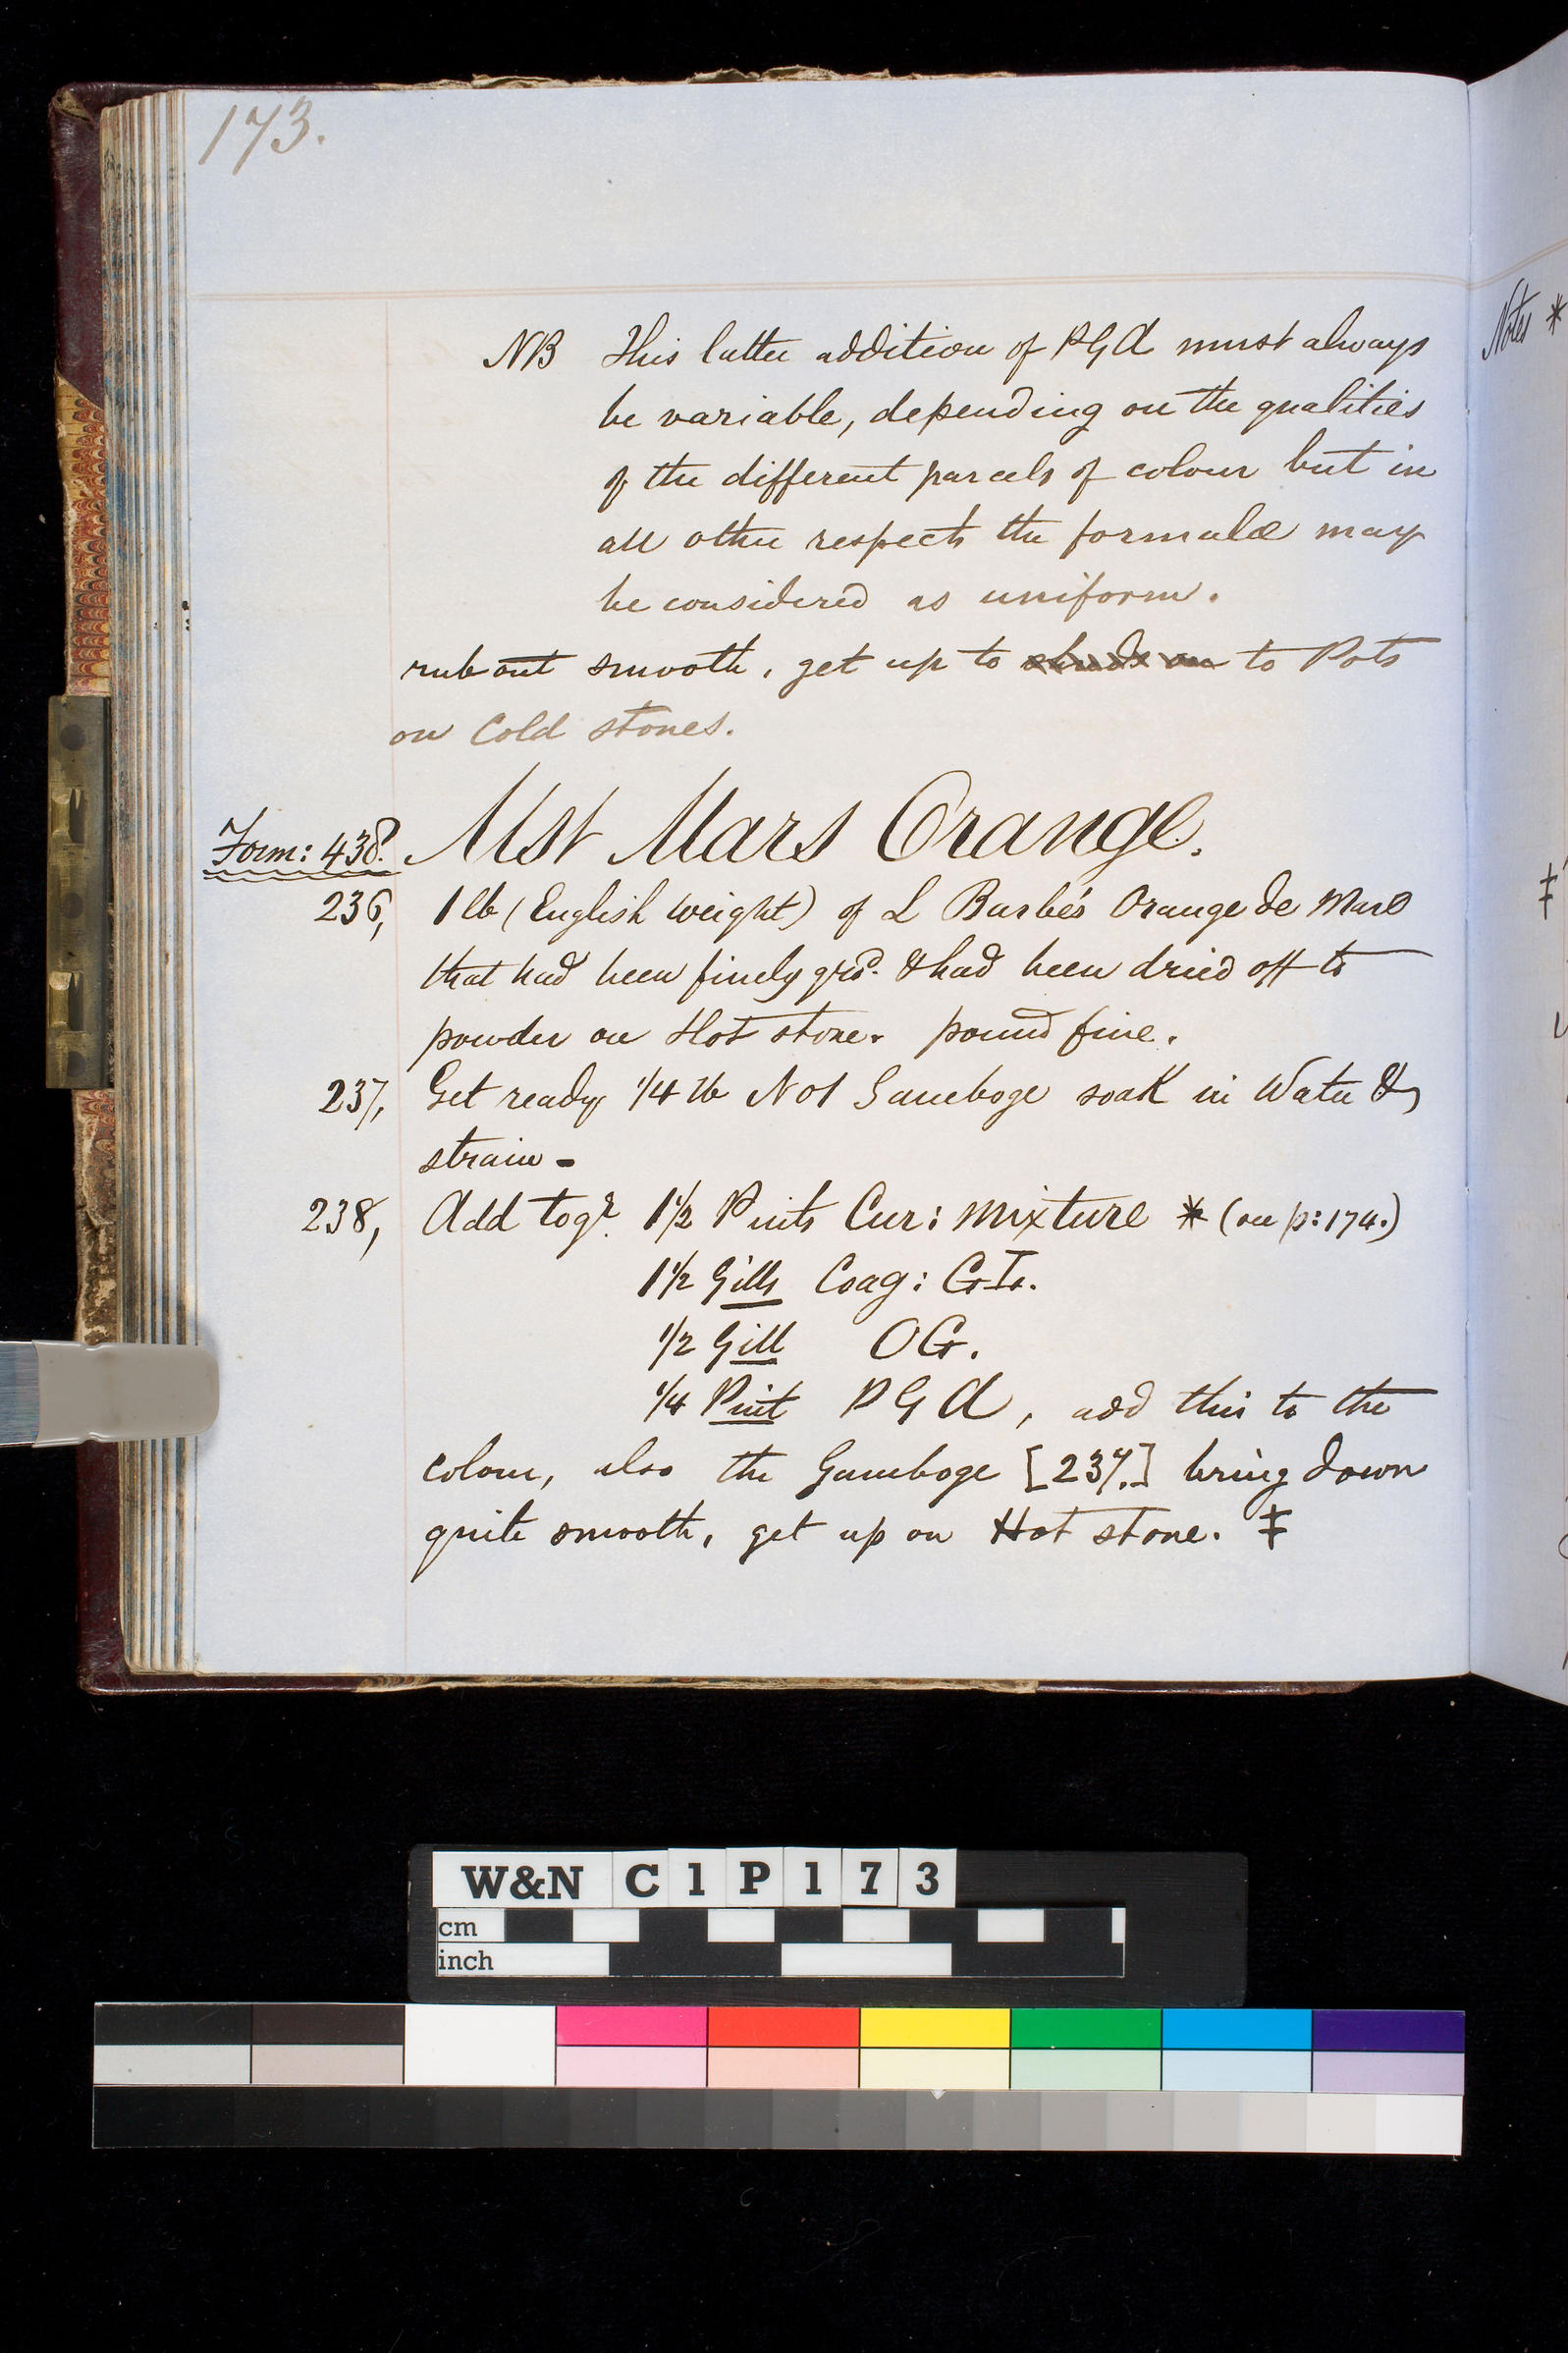 173.
NB This latter addition of PGA must always
be variable, depending on the qualities
of the different parcels of colour but in
all other respects the formulæ may
be considered as uniform.
rub out smooth, get up to to Pots
on Cold stones.
Form: 438. Mst Mars Orange.
236, 1 lb (English Weight) of L Barbe's Orange de Mars
that had been finely grd. & had been dried off to
powder on Hot stone. pound fine.
237, Get ready 1/4 lb No1 Gamboge soak in Water &
strain -
238, Add togr. 1 1/2 Pints Cur: Mixture * (on p: 174.)
1 1/2 Gills Coag: GT.
1/2 Gill OG.
1/4 Pint PGA, add this to the
colour, also the Gamboge [237.] bring down
quite smooth, get up on Hot stone. ‡
Notes *
‡
W&N C1P173
cm
inch